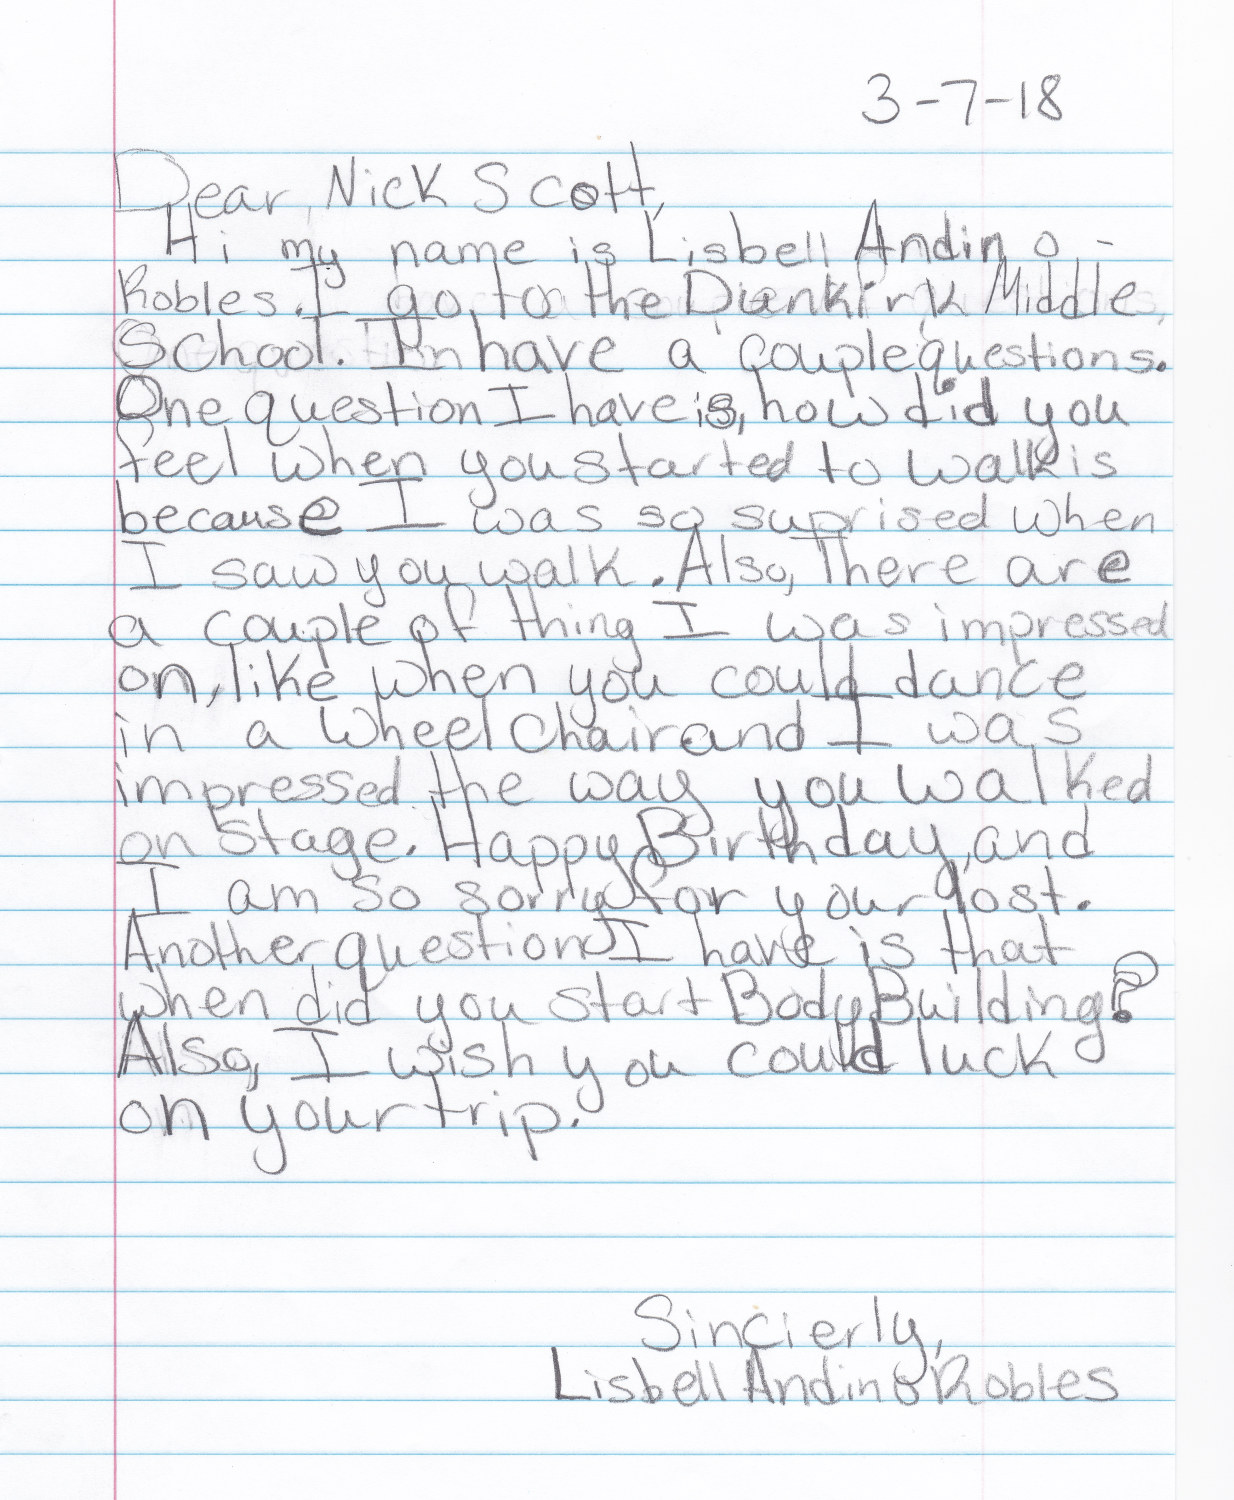 3-7-18
Dear, Nick Scott,
Hi my name is Lisbell Andino-
Robles. I go to the Dunkirk Middle
School. I have a couple questions.
One question I have is, how did you
feel when you started to walk is
because I was so suprised when
I saw you walk. Also, There are
a couple of thing I was impressed
on, like when you could dance
in a Wheel Chair and I was
impressed the way you walked
on Stage. Happy Birthday, and
I am so sorry for your lost.
Another question I have is that
when did you start Body Building?
Also, I wish you could luck
on your trip.
Sincierly,
Lisbell Andino Robles